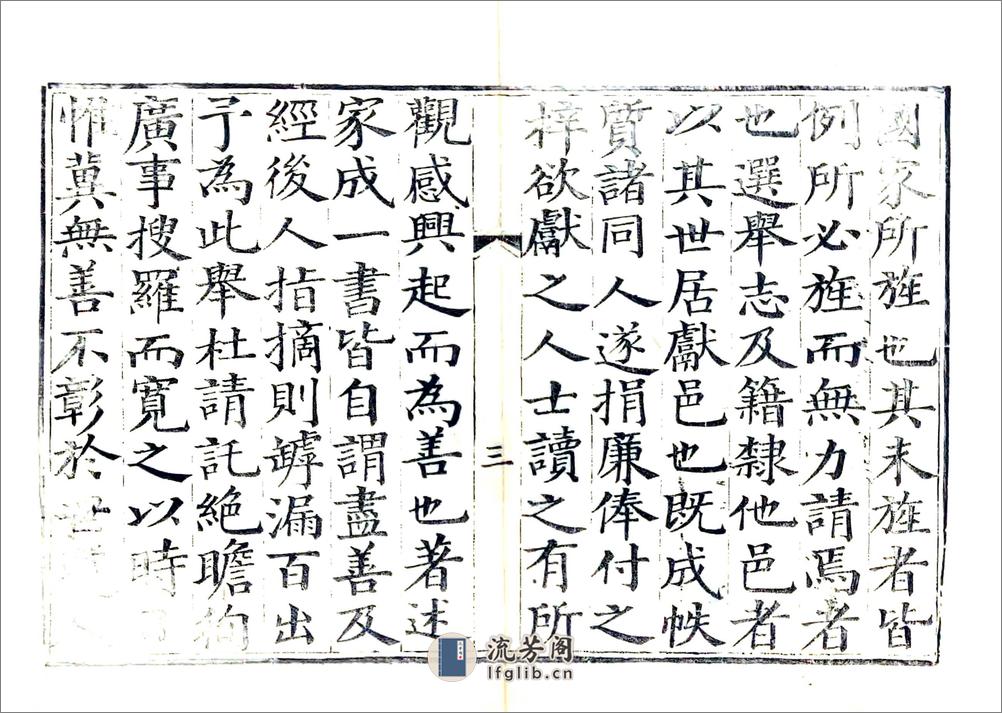 國家所旌也其未旌者皆
例所必旌而無力請焉者
也選舉志及籍隸他邑者
以其世居獻邑也既成帙
質諸同人遂捐廉俸付之
梓欲獻之人士讀之有所
三
觀感興起而為善也著述
家成一書皆自謂盡善及
經後人指摘則罅漏百出
予為此舉杜請託絶瞻徇
廣事搜羅而寬之以時日
惟冀無善不彰於世
流芳阁
lfglib.cn